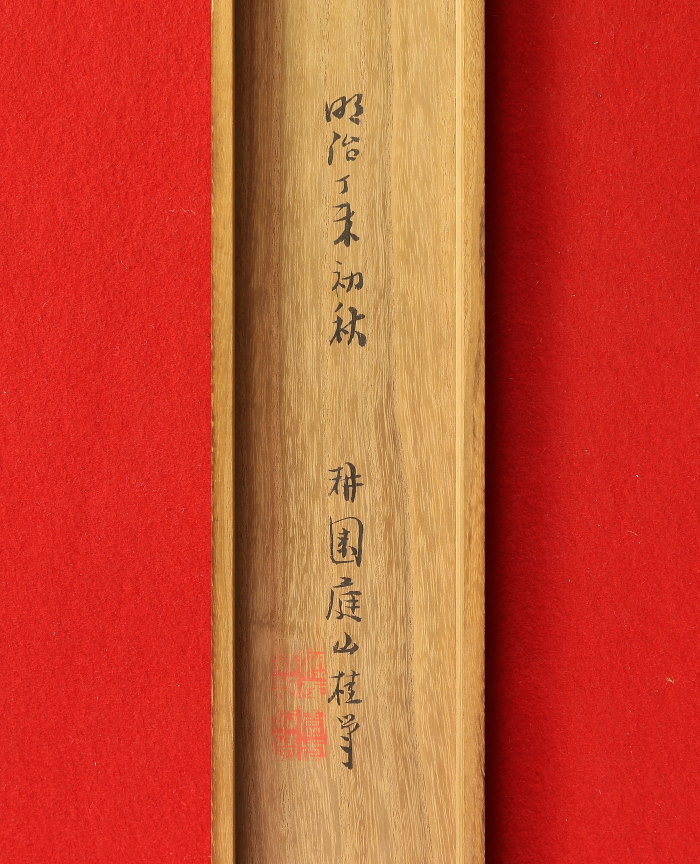 明治丁未初秋 耕園庭山桂筆